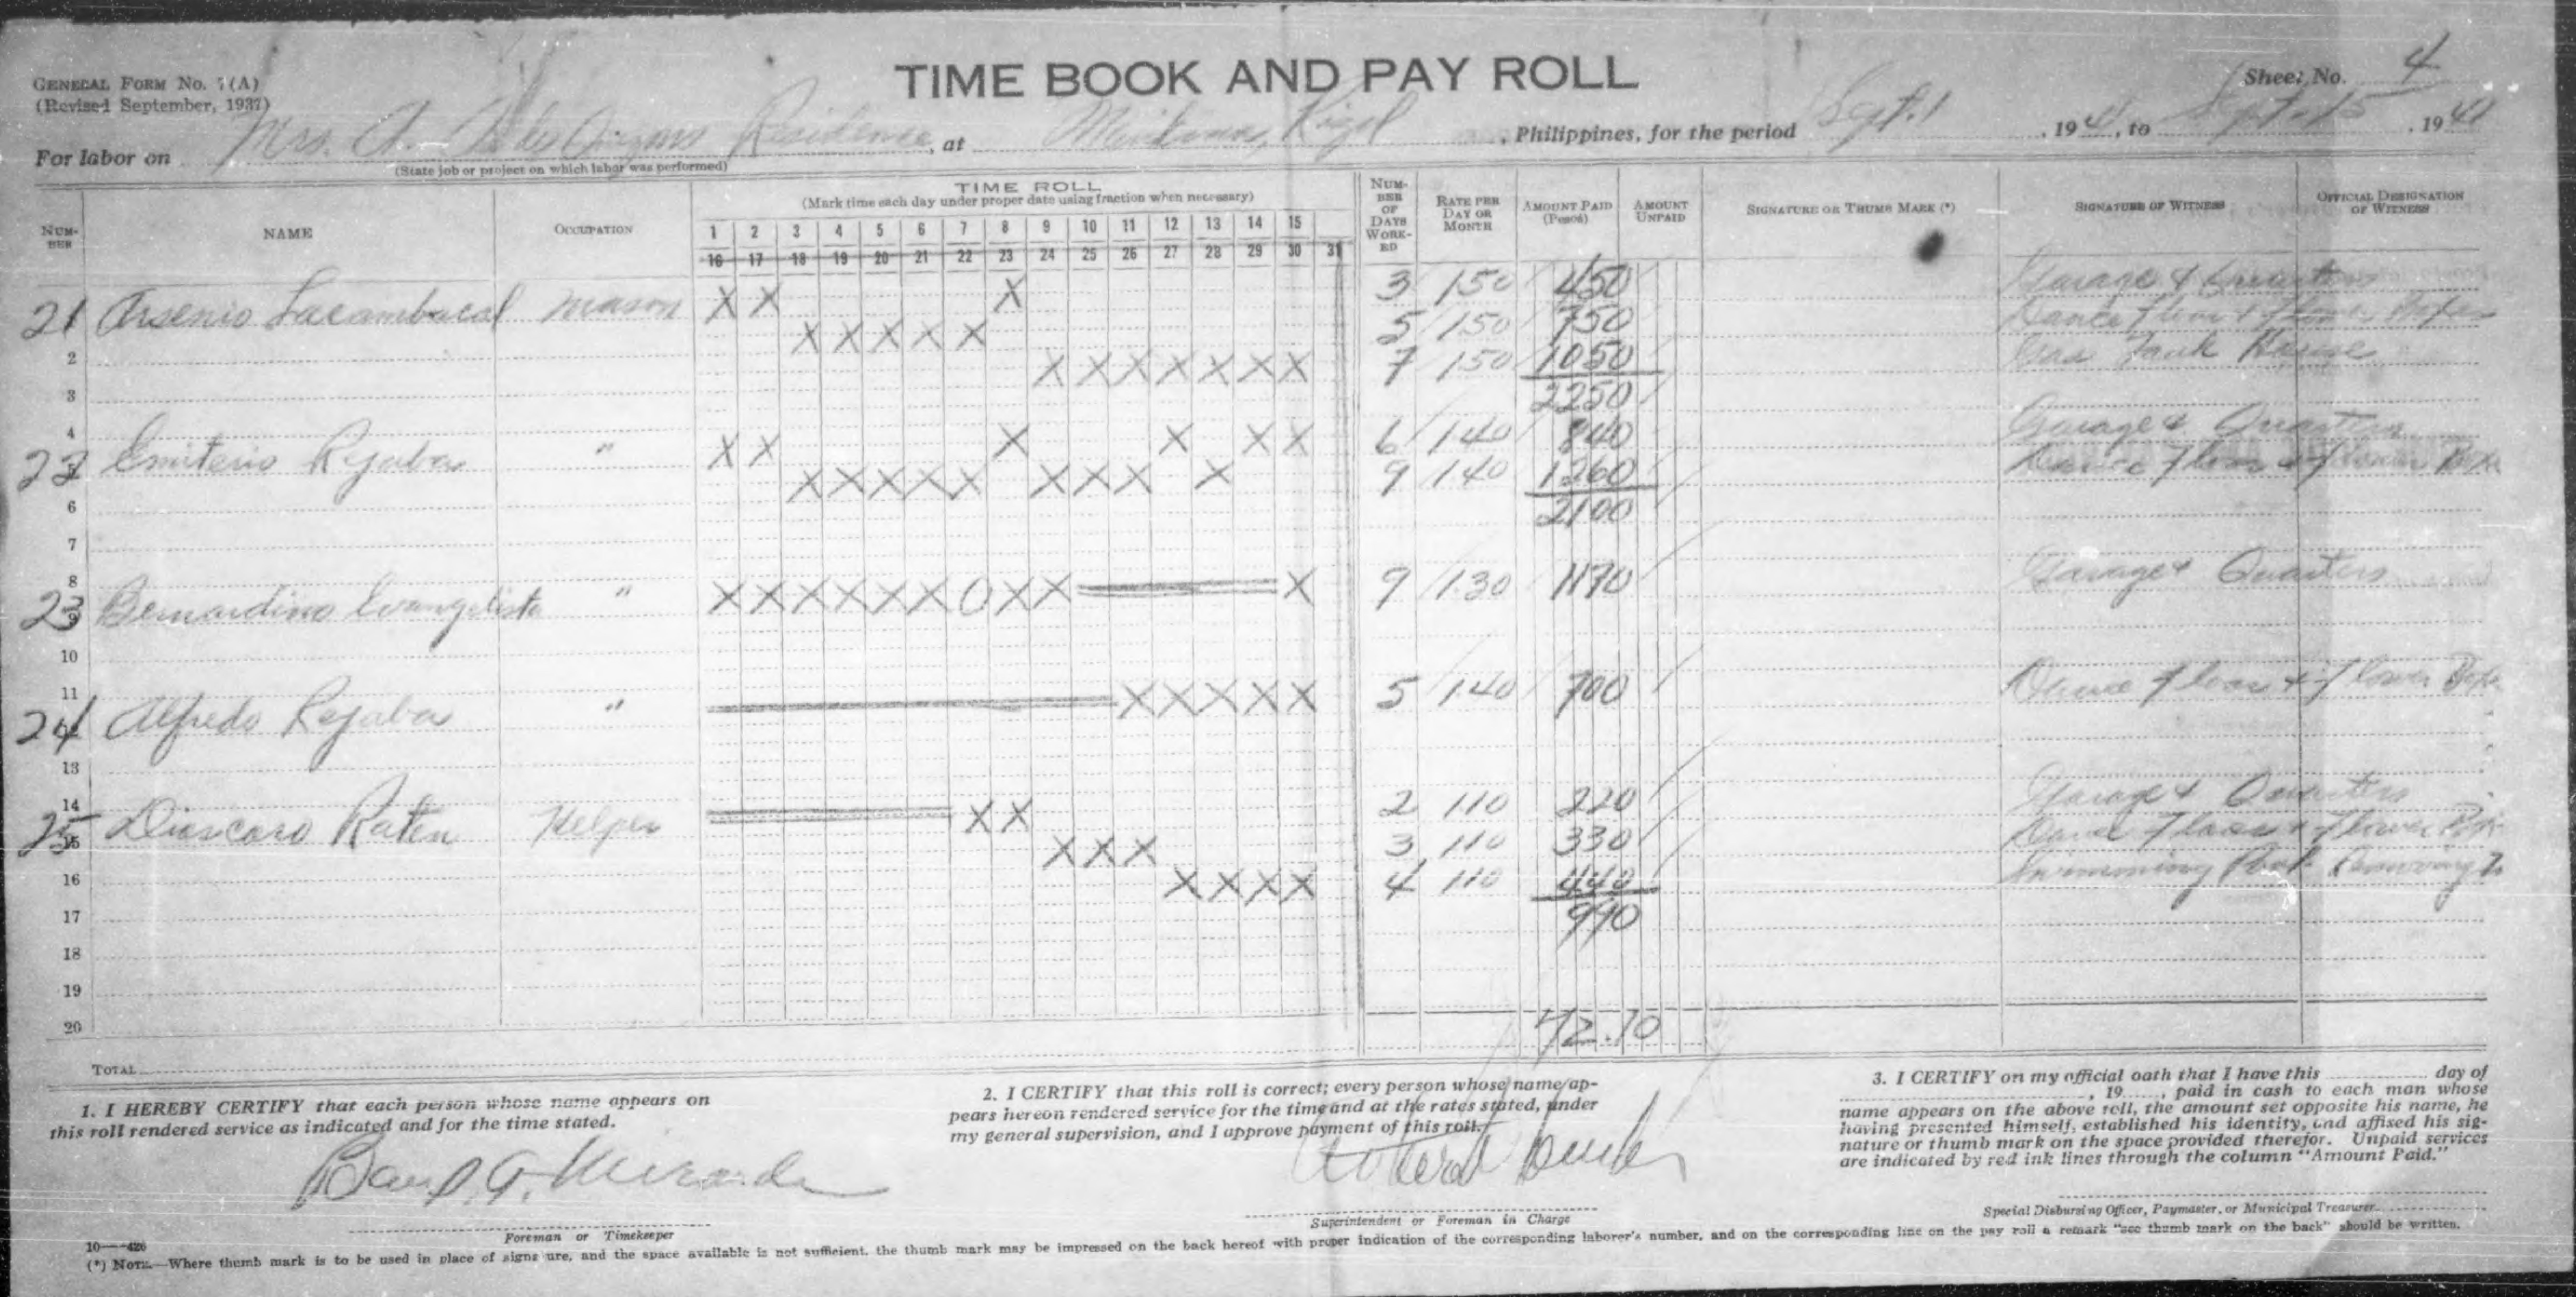 GENERAL FORM No. 7(A)
(Revised September, 1937)
TIME BOOK AND PAY ROLL
Sheet No. 4
For labor on Mrs. A. Residence, at Rizal, Philippines, for the period Sept. 1, 1941, to Sept. 15, 1941
(State job or project on which labor was performed)
NUMBER NAME OCCUPATION TIME ROLL NUMBER OF DAYS WORKED RATE PER DAY OR MONTH AMOUNT PAID (Pesos) AMOUNT UNPAID SIGNATURE OR THUMB MARK (*) SIGNATURE OF WITNESS OFFICIAL DESIGNATION OF WITNESS
(Mark time each day under proper date using fraction when necessary)
1 2 3 4 5 6 7 8 9 10 11 12 13 14 15
16 17 18 19 20 21 22 23 24 25 26 27 28 29 30 31
21 Arsenio Lacambacal Mason X X X 3 150 450 Garage & Quarters
X X X X X 5 150 750 Dance floor & flower Boxes
2 X X X X X X X 7 150 1050 Gas Tank House
3 2250
4
22 Emiterio Rejaba " X X X X X X 6 140 840 Garage & Quarters
X X X X X X X X X 9 140 1260 Dance floor & flower Box
6 2100
7
8
23 Bernardino Evangelista " X X X X X X O X X X 9 130 1170 Garage & Quarters
9
10
11
24 Alfredo Rejaba " X X X X X 5 140 700 Dance floor & flower Box
13
14
25 Dioscoro Raten Helper X X 2 110 220 Garage & Quarters
15 X X X 3 110 330 Dance floor & flower Box
16 X X X X 4 110 440 Swimming Pool Removing
17 990
18
19
20 72.10
TOTAL
1. I HEREBY CERTIFY that each person whose name appears on
this roll rendered service as indicated and for the time stated.
G. Miranda
Foreman or Timekeeper
2. I CERTIFY that this roll is correct; every person whose name ap-
pears hereon rendered service for the time and at the rates stated, under
my general supervision, and I approve payment of this roll.
Superintendent or Foreman in Charge
3. I CERTIFY on my official oath that I have this day of
, 19 , paid in cash to each man whose
name appears on the above roll, the amount set opposite his name, he
having presented himself, established his identity, and affixed his sig-
nature or thumb mark on the space provided therefor. Unpaid services
are indicated by red ink lines through the column "Amount Paid."
Special Disbursing Officer, Paymaster, or Municipal Treasurer.
10—426
(*) NOTE.—Where thumb mark is to be used in place of signature, and the space available is not sufficient, the thumb mark may be impressed on the back hereof with proper indication of the corresponding laborer's number, and on the corresponding line on the pay roll a remark "see thumb mark on the back" should be written.